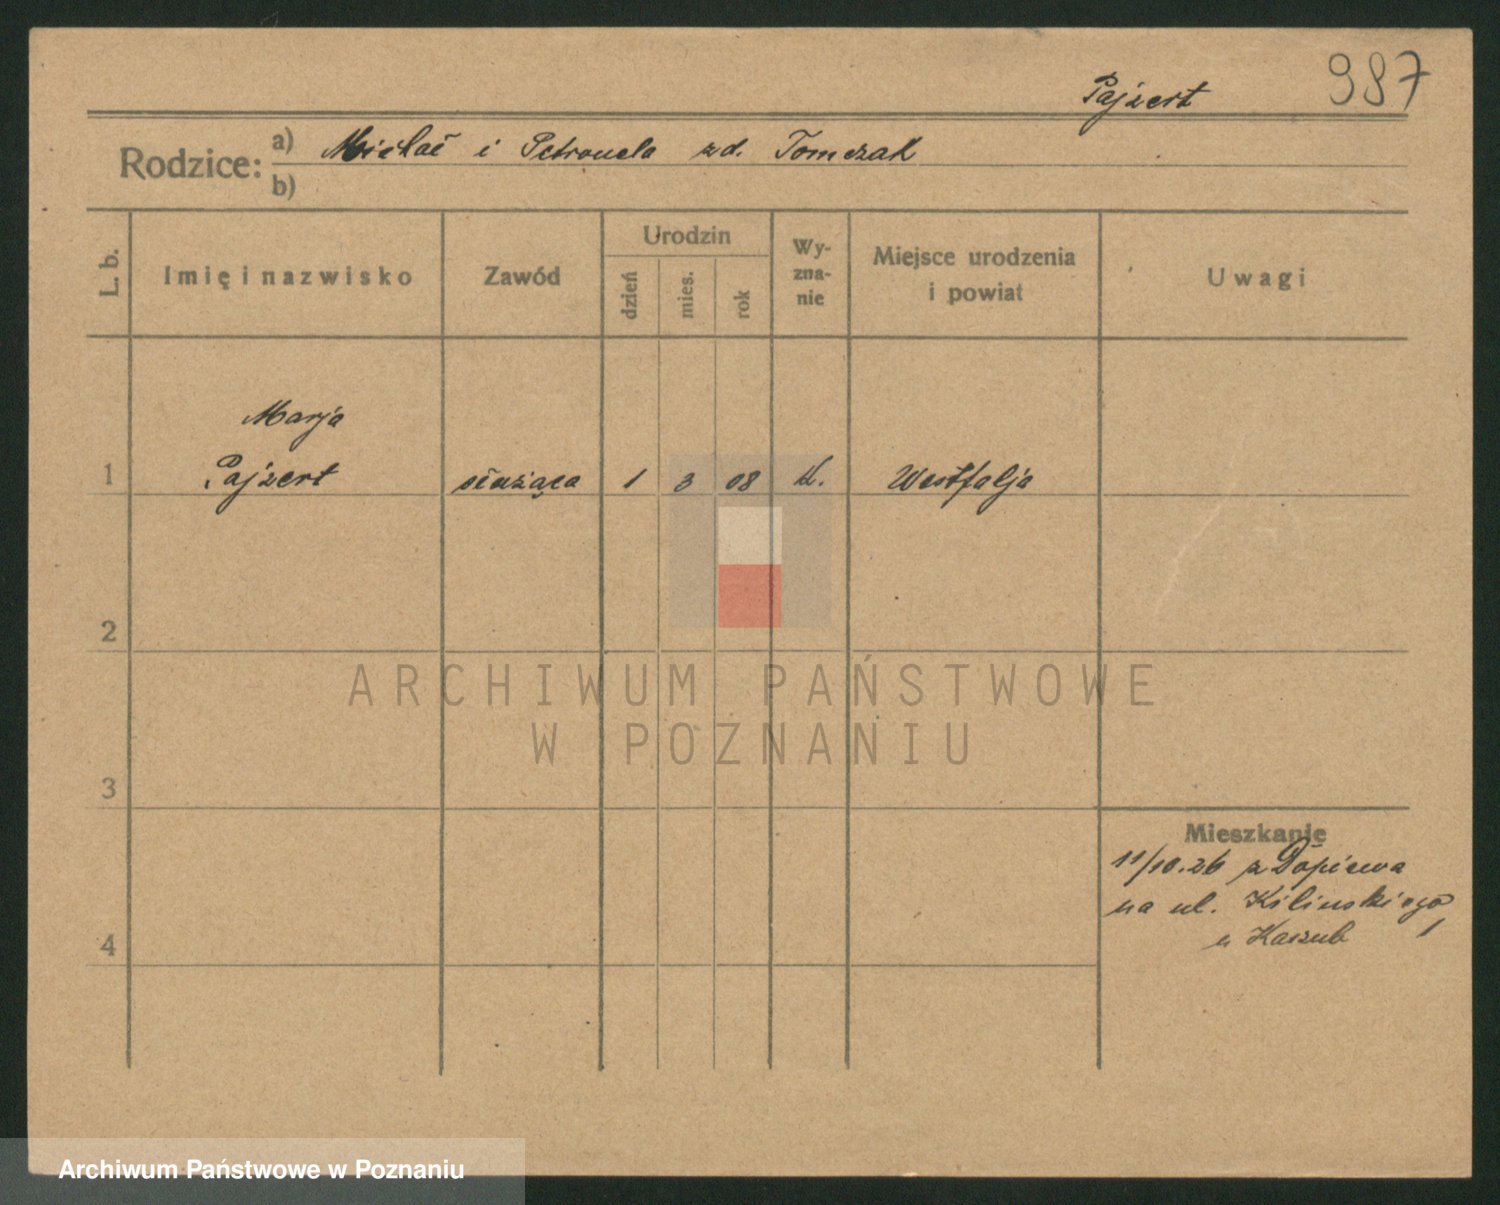 987
Pajzert
Rodzice:
a) Michał i Petronela zd. Tomczak
b)
L. b.
Imię i nazwisko
Zawód
Urodzin
dzień
mies.
rok
Wy-
zna-
nie
Miejsce urodzenia
i powiat
Uwagi
Marja
1 Pajzert służąca 1 3 08 k. Westfalja
2
3
4
Mieszkanie
11/10.26 z Dopiewa
na ul. Kilińskiego 1
u Kaczub
ARCHIWUM PAŃSTWOWE
W POZNANIU
Archiwum Państwowe w Poznaniu